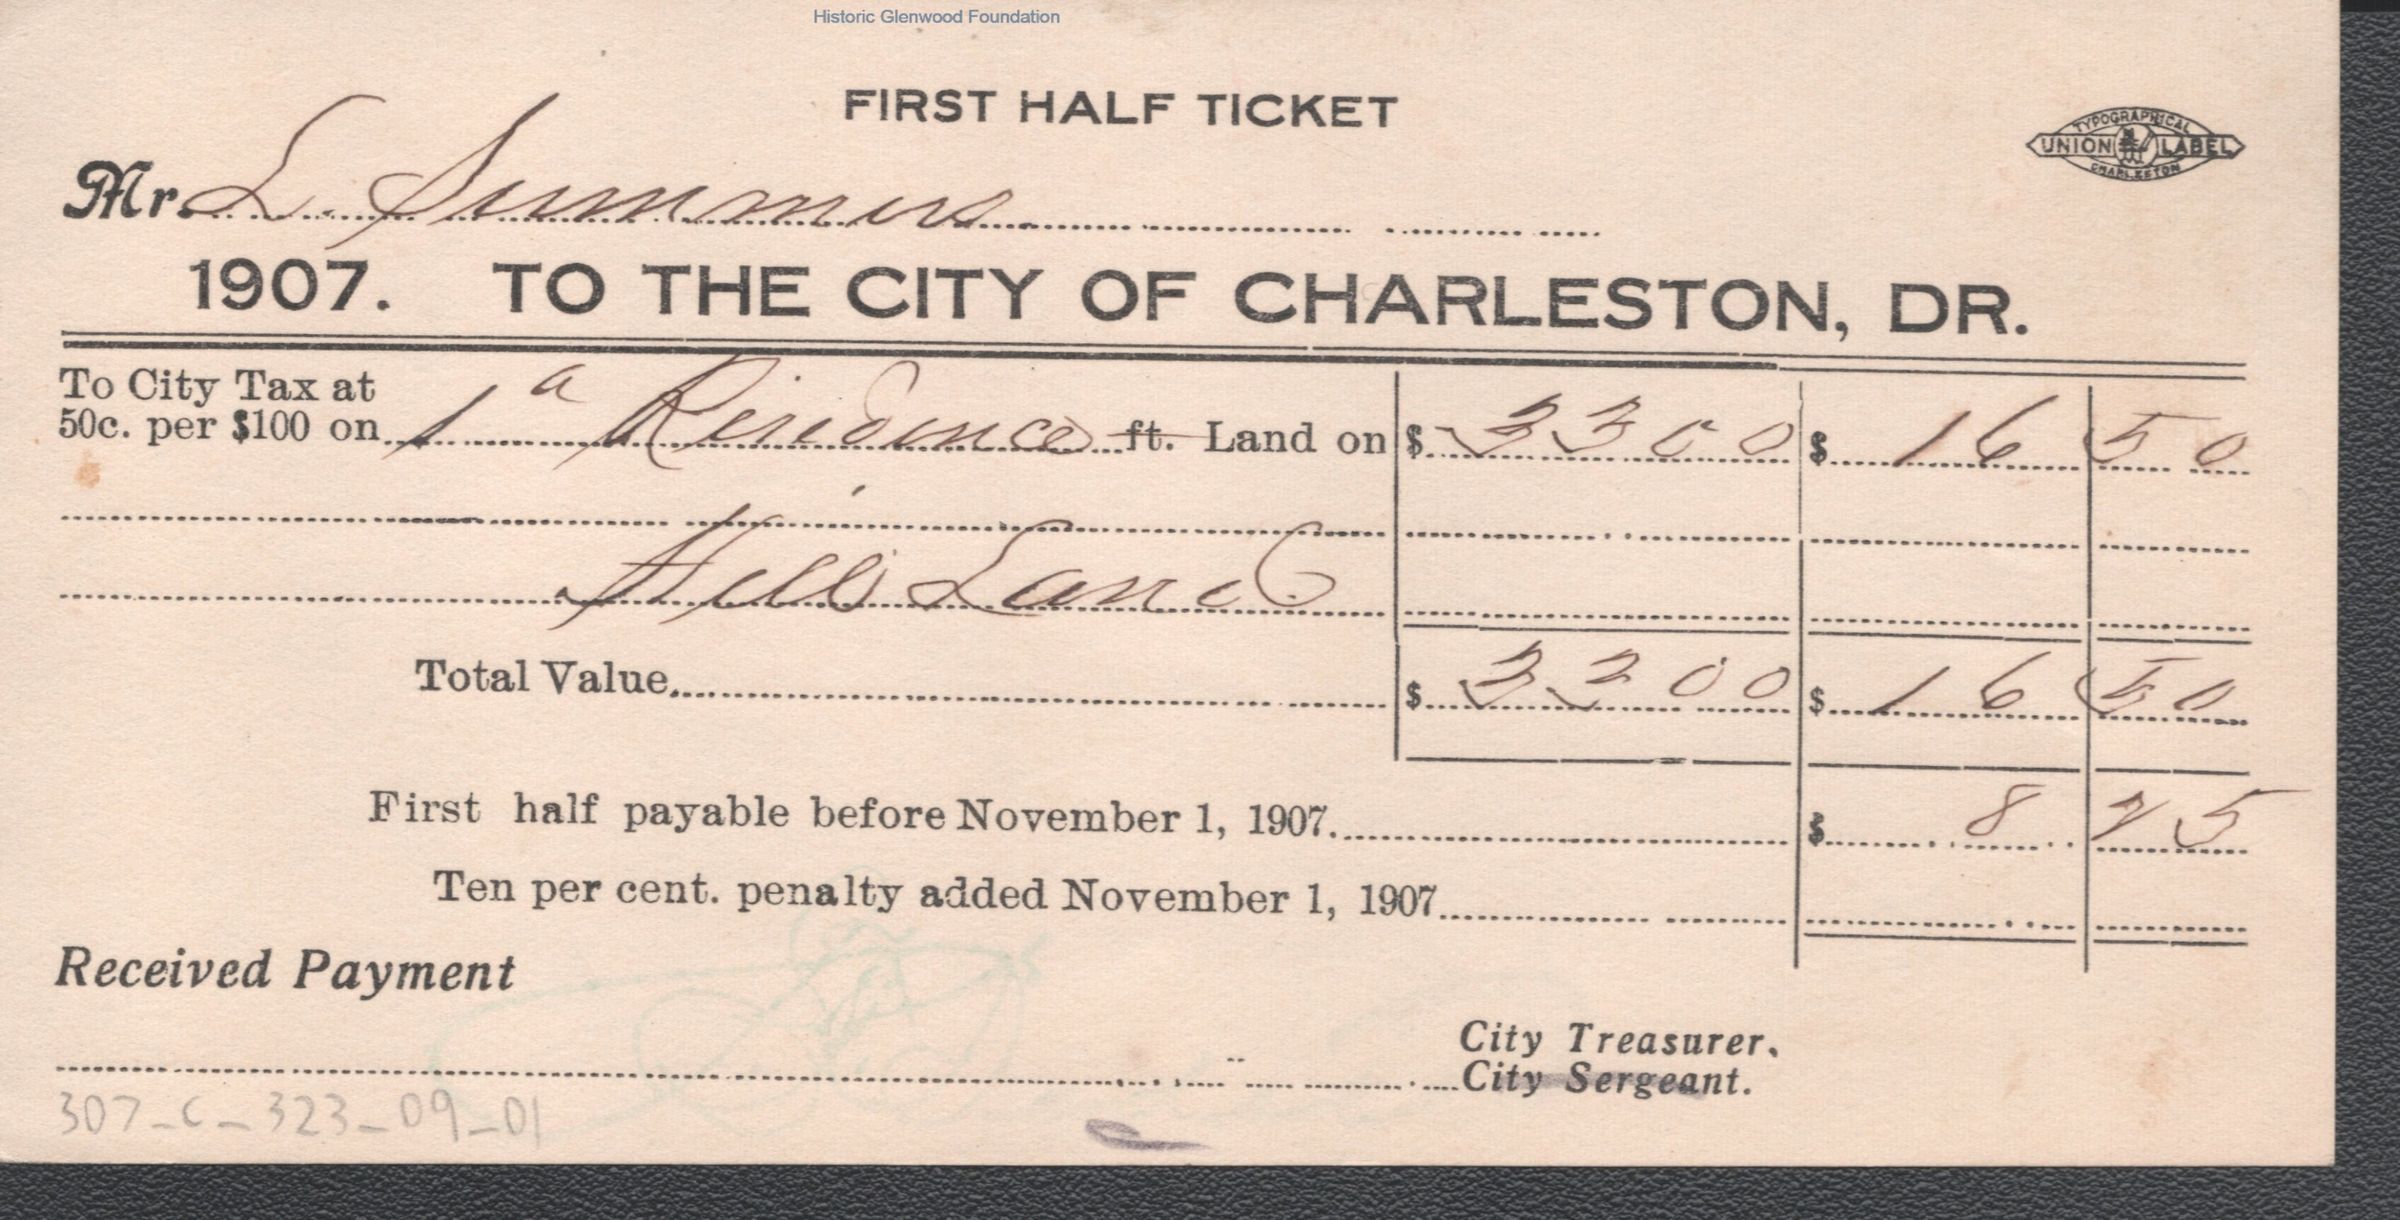 Historic Glenwood Foundation
FIRST HALF TICKET
TYPOGRAPHICAL
UNION LABEL
CHARLESTON
Mr. L. Summers
1907. TO THE CITY OF CHARLESTON, DR.
To City Tax at
50c. per $100 on 1 a Residence ft. Land on $ 3300 $ 16 50
Hill Land
Total Value $ 3300 $ 16 50
First half payable before November 1, 1907. $ 8 25
Ten per cent. penalty added November 1, 1907
Received Payment
City Treasurer.
City Sergeant.
307-C-323-09-01